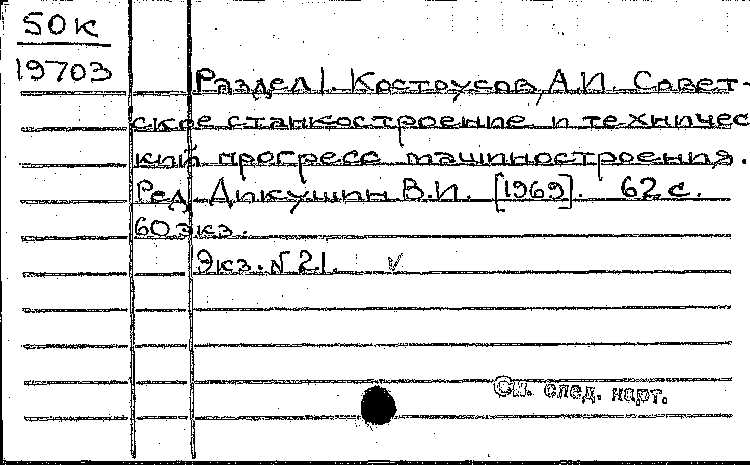 50к
19703
Раздел 1. Костоусов, А.И. Совет-
ское станкостроение и техничес
кий прогресс машиностроения.
Ред. Дикушин В.И. [1969]. 62 с.
60 экз.
Экз. № 21. ✓
См. след. карт.